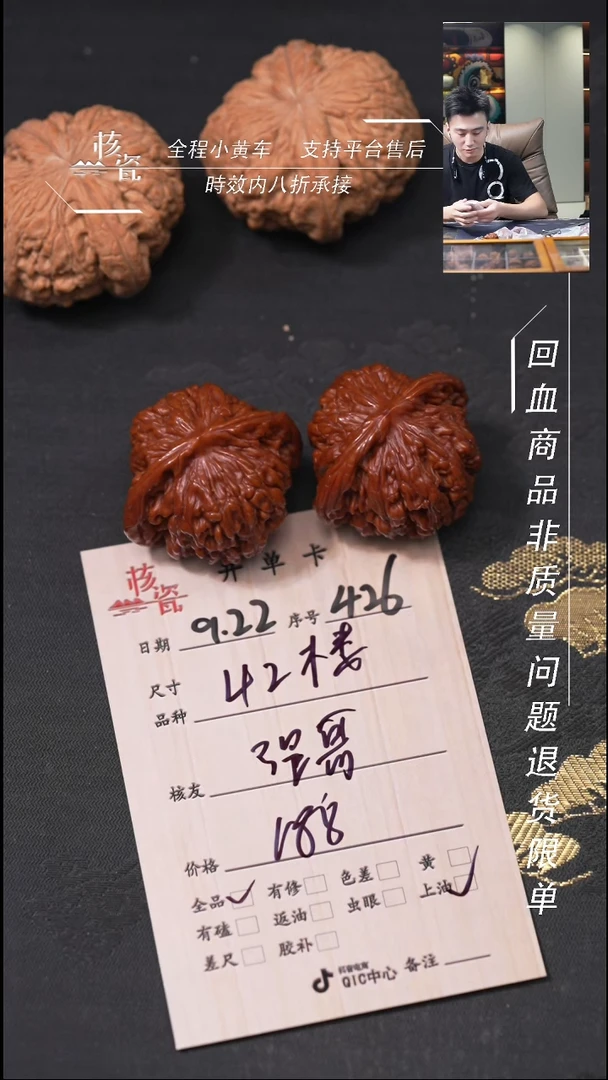 核瓷
全程小黄车 支持平台售后
時效内八折承接
回血商品非质量问题退货限单
开单卡
核瓷
日期 9.22 序号 426
尺寸
品种 42楼
核友
价格 188
全品 ✓ 有修 色差 黄
有磕 返油 虫眼 上油 ✓
差尺 胶补
抖音电商
QIC中心 备注